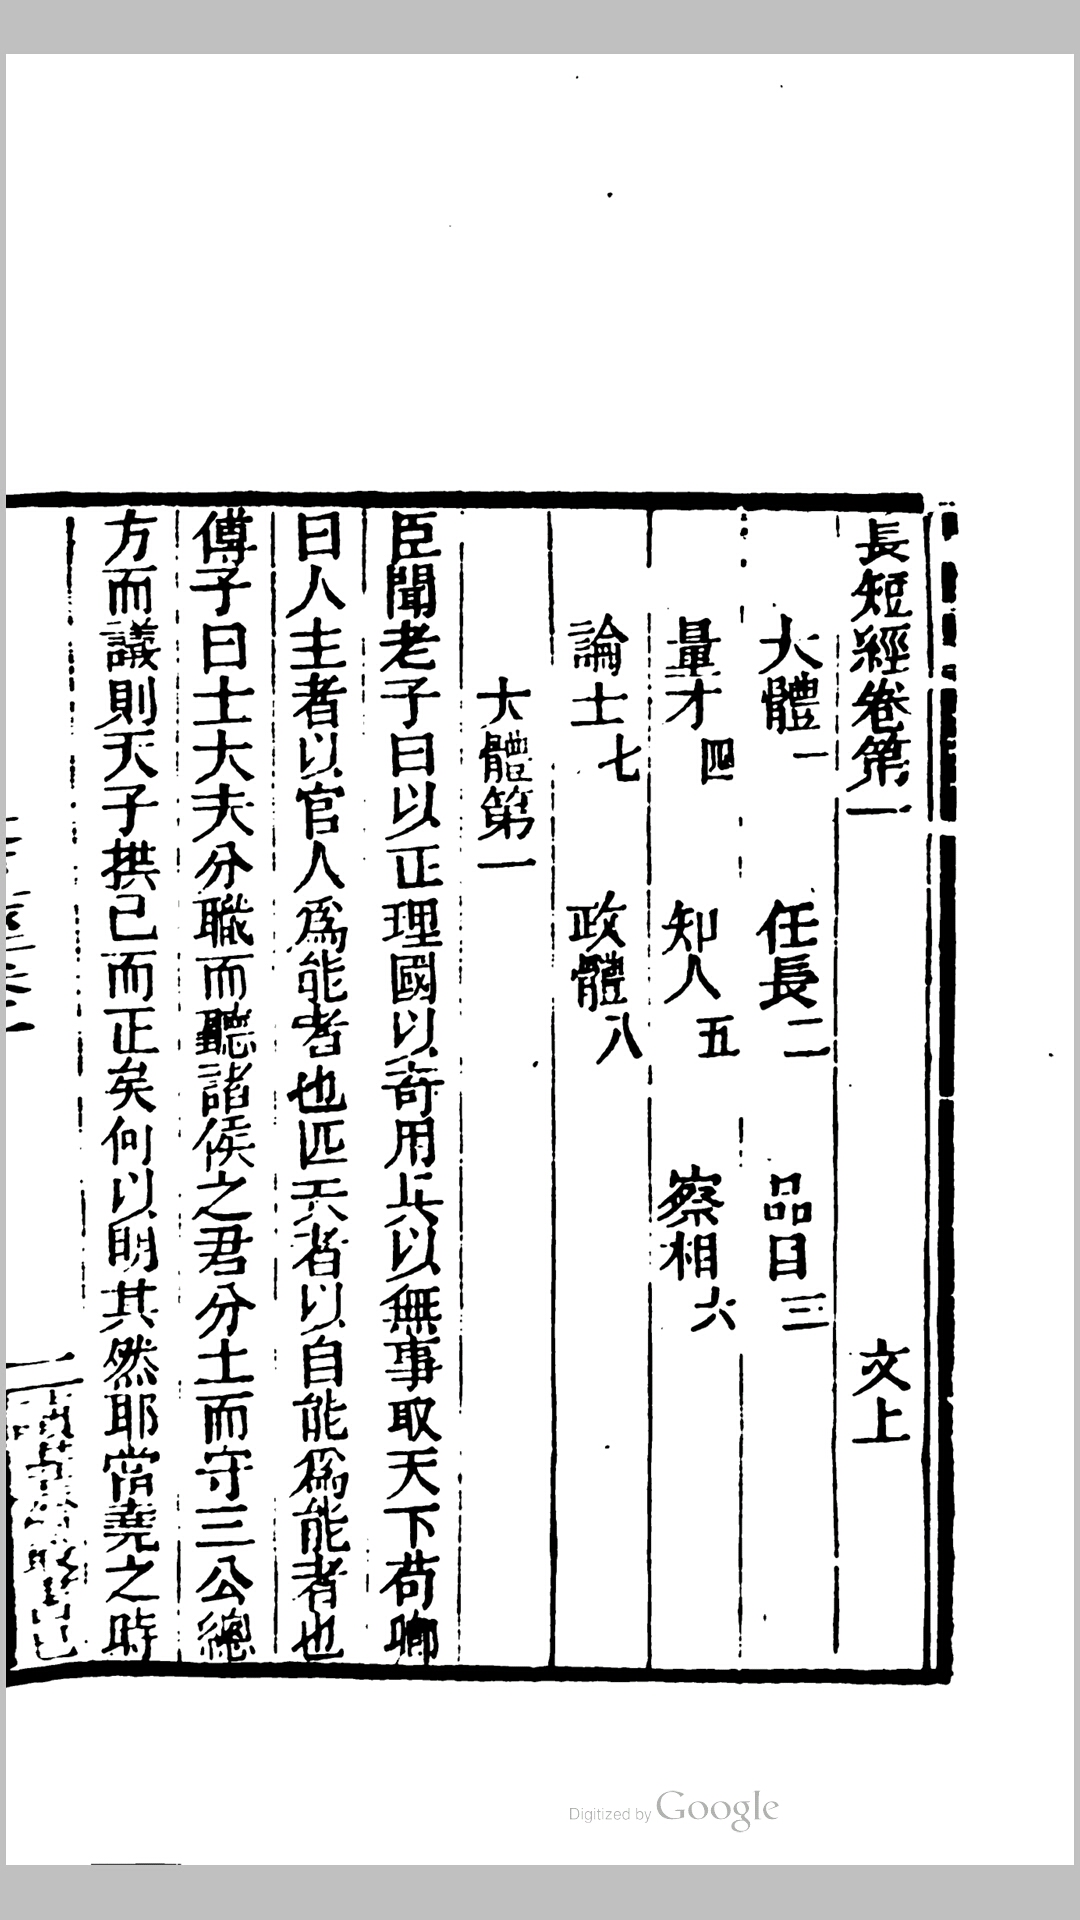 長短經卷第一 文上
大體一 任長二 品目三
量才四 知人五 察相六
論士七 政體八
大體第一
臣聞老子曰以正理國以奇用兵以無事取天下荀卿
曰人主者以官人爲能者也匹夫者以自能爲能者也
傅子曰士大夫分職而聽諸侯之君分土而守三公總
方而議則天子拱己而正矣何以明其然耶當堯之時
Digitized by Google